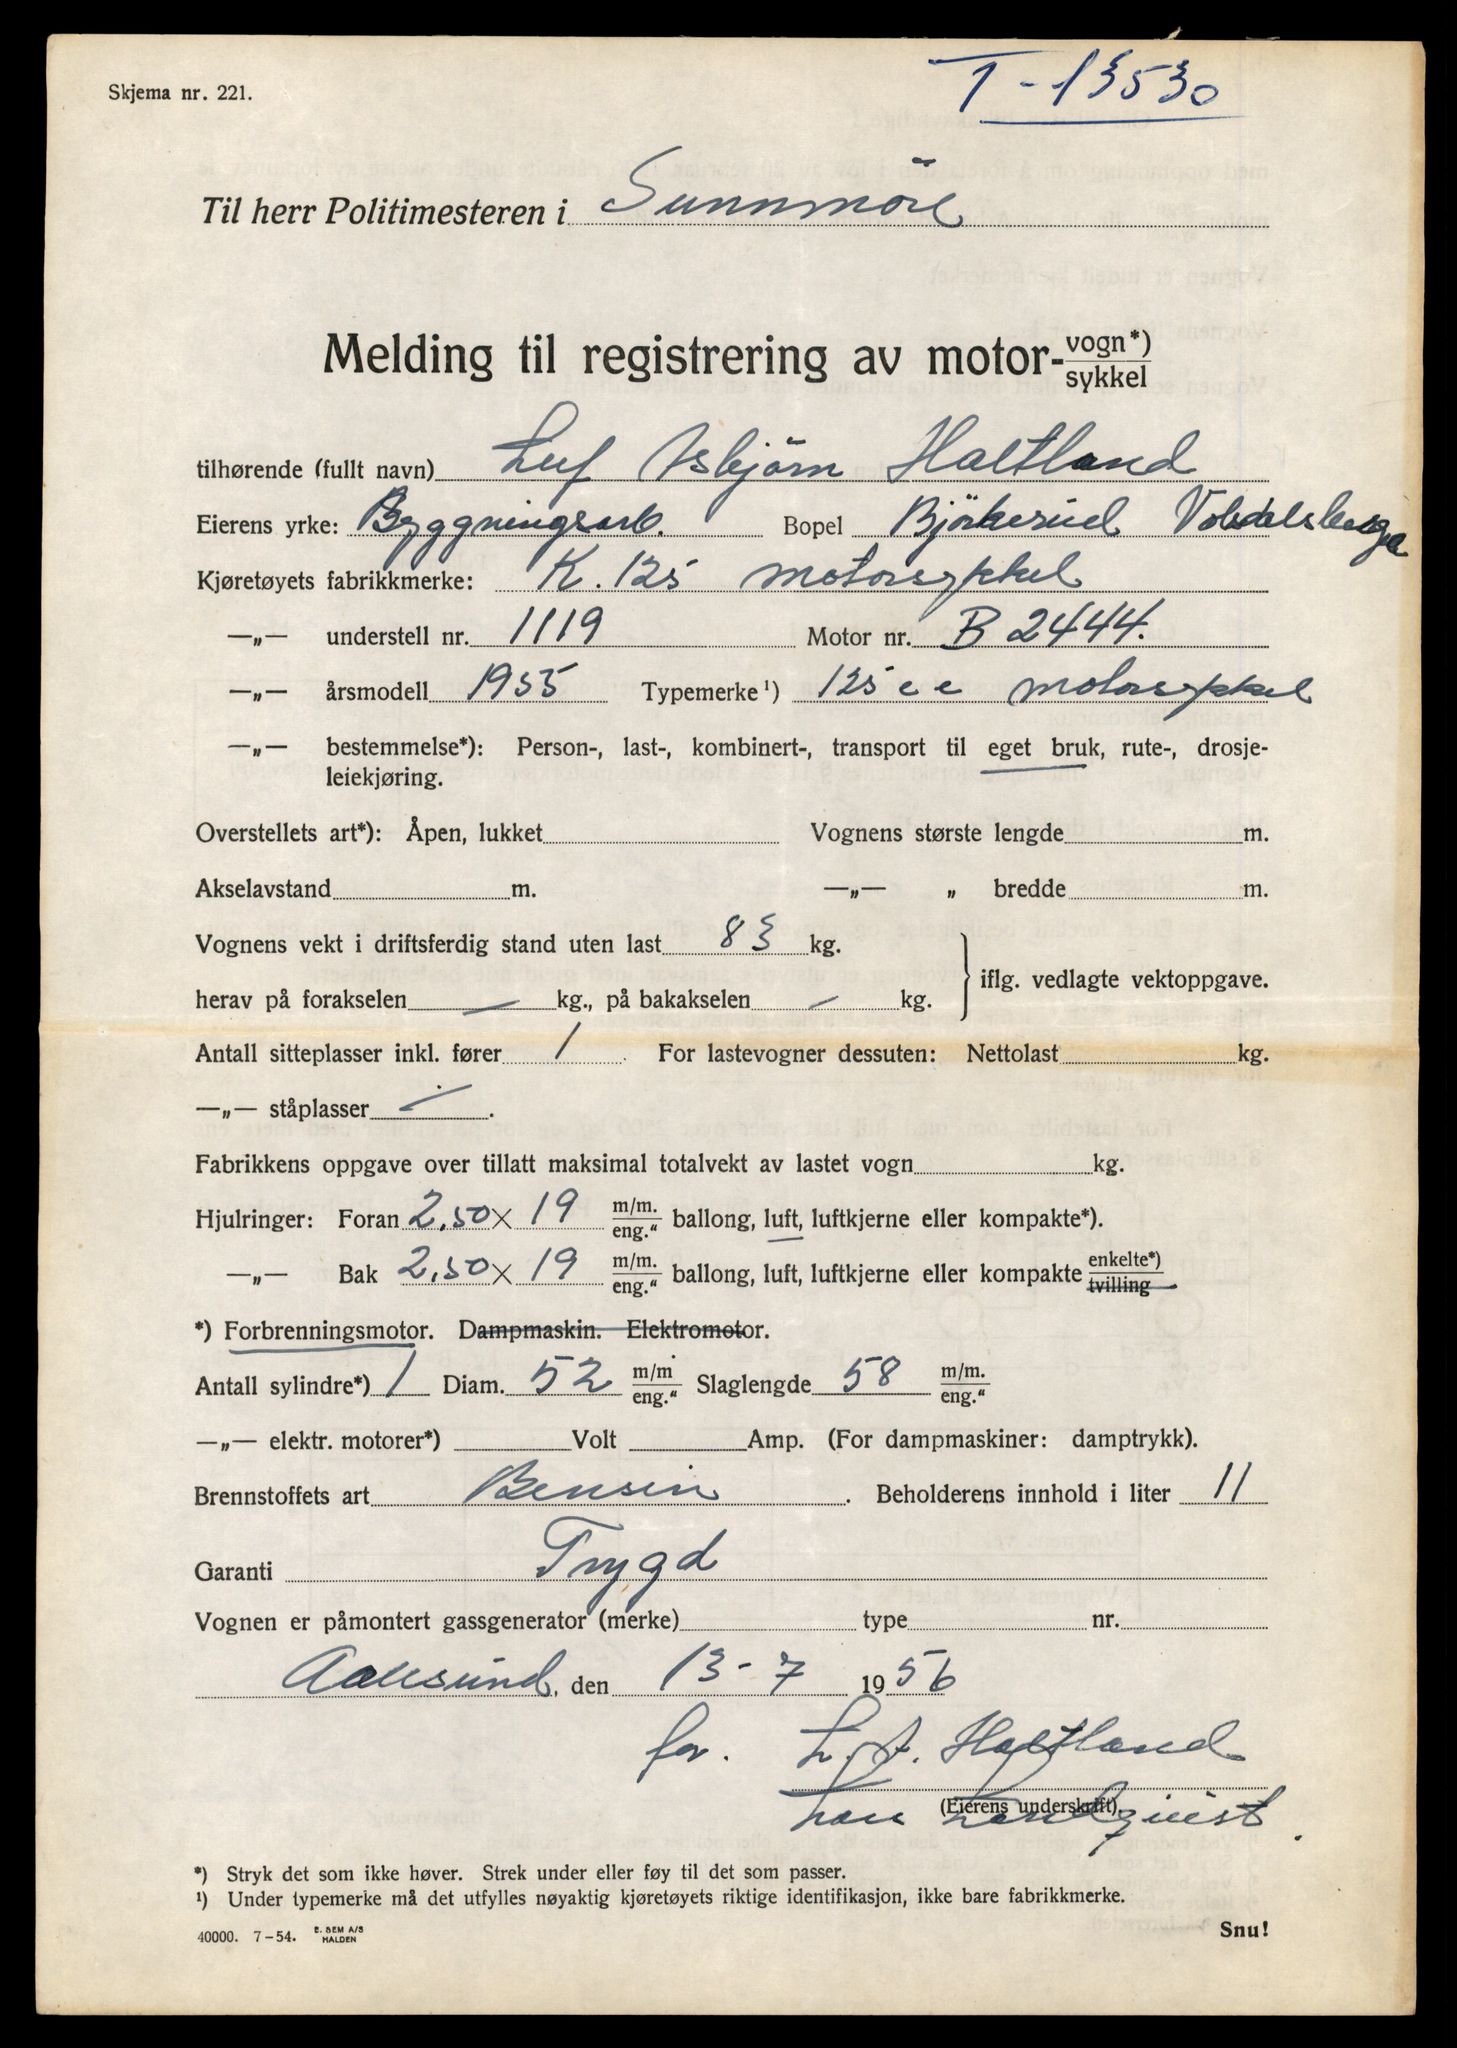 Skjema nr. 221.
T-13530
Til herr Politimesteren i Sunnmöre
Melding til registrering av motor-vogn*)
sykkel
tilhørende (fullt navn) Leif Asbjörn Haltland
Eierens yrke: Byggningsarb. Bopel Björkerud Volsdalsberga
Kjøretøyets fabrikkmerke: K. 125 motorsykkel
—„— understell nr. 1119 Motor nr. B 2444.
—„— årsmodell 1955 Typemerke¹) 125 c c motorsykkel
—„— bestemmelse*): Person-, last-, kombinert-, transport til eget bruk, rute-, drosje-
leiekjøring.
Overstellets art*): Åpen, lukket Vognens største lengde m.
Akselavstand m. —„— „ bredde m.
Vognens vekt i driftsferdig stand uten last 83 kg.
iflg. vedlagte vektoppgave.
herav på forakselen — kg., på bakakselen — kg.
Antall sitteplasser inkl. fører 1 . For lastevogner dessuten: Nettolast kg.
—„— ståplasser — .
Fabrikkens oppgave over tillatt maksimal totalvekt av lastet vogn kg.
Hjulringer: Foran 2,50 x 19 m/m. eng.“ ballong, luft, luftkjerne eller kompakte*).
—„— Bak 2,50 x 19 m/m. eng.“ ballong, luft, luftkjerne eller kompakte enkelte*) tvilling
*) Forbrenningsmotor. Dampmaskin. Elektromotor.
Antall sylindre*) 1 Diam. 52 m/m eng.“ Slaglengde 58 m/m. eng.“
—„— elektr. motorer*) Volt Amp. (For dampmaskiner: damptrykk).
Brennstoffets art Bensin . Beholderens innhold i liter 11
Garanti Trygd
Vognen er påmontert gassgenerator (merke) type nr.
Aalesund, den 13-7 1956
for. L. A. Haltland
(Eierens underskrift).
*) Stryk det som ikke høver. Strek under eller føy til det som passer.
¹) Under typemerke må det utfylles nøyaktig kjøretøyets riktige identifikasjon, ikke bare fabrikkmerke.
40000. 7–54. E. SEM A/S HALDEN
Snu!